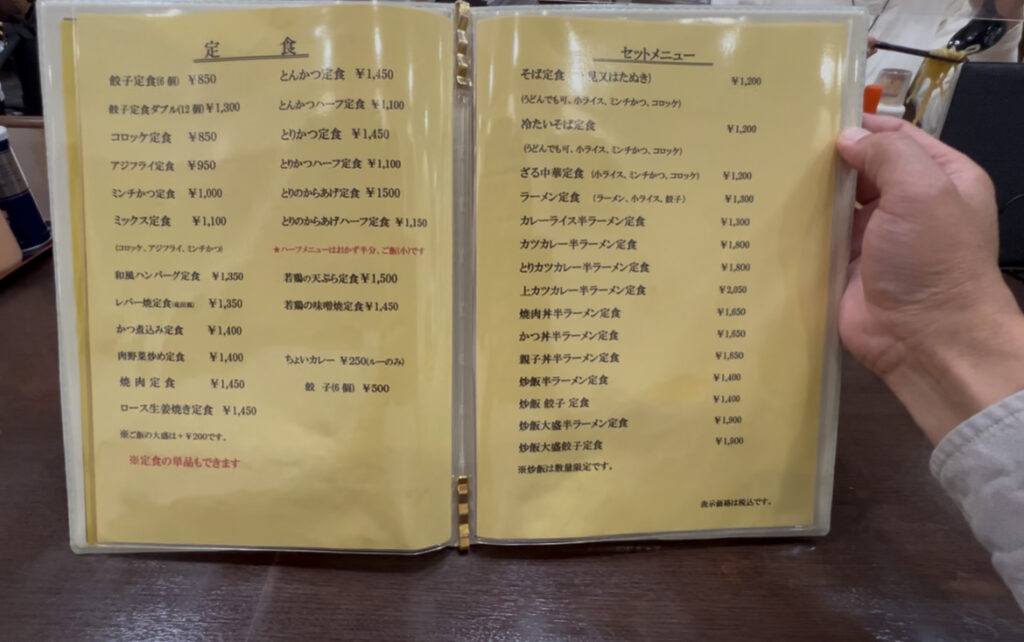 定 食
餃子定食(6個) ¥850
餃子定食ダブル(12個) ¥1,300
コロッケ定食 ¥850
アジフライ定食 ¥950
ミンチかつ定食 ¥1,000
ミックス定食 ¥1,100
(コロッケ、アジフライ、ミンチかつ)
和風ハンバーグ定食 ¥1,350
レバー焼定食 ¥1,350
かつ煮込み定食 ¥1,400
肉野菜炒め定食 ¥1,400
焼肉定食 ¥1,450
ロース生姜焼き定食 ¥1,450
※ご飯の大盛は+¥200です。
※定食の単品もできます
とんかつ定食 ¥1,450
とんかつハーフ定食 ¥1,100
とりかつ定食 ¥1,450
とりかつハーフ定食 ¥1,100
とりのからあげ定食 ¥1500
とりのからあげハーフ定食 ¥1,150
★ハーフメニューはおかず半分、ご飯(小)です
若鶏の天ぷら定食 ¥1,500
若鶏の味噌焼定食 ¥1,450
ちょいカレー ¥250(ルーのみ)
餃子(6個) ¥500
セットメニュー
そば定食 見又はたぬき) ¥1,200
(うどんでも可、小ライス、ミンチかつ、コロッケ)
冷たいそば定食 ¥1,200
(うどんでも可、小ライス、ミンチかつ、コロッケ)
ざる中華定食 (小ライス、ミンチかつ、コロッケ) ¥1,200
ラーメン定食 (ラーメン、小ライス、餃子) ¥1,300
カレーライス半ラーメン定食 ¥1,300
カツカレー半ラーメン定食 ¥1,800
とりカツカレー半ラーメン定食 ¥1,800
上カツカレー半ラーメン定食 ¥2,050
焼肉丼半ラーメン定食 ¥1,650
かつ丼半ラーメン定食 ¥1,650
親子丼半ラーメン定食 ¥1,650
炒飯半ラーメン定食 ¥1,400
炒飯 餃子 定食 ¥1,400
炒飯大盛半ラーメン定食 ¥1,900
炒飯大盛餃子定食 ¥1,900
※炒飯は数量限定です。
表示価格は税込です。